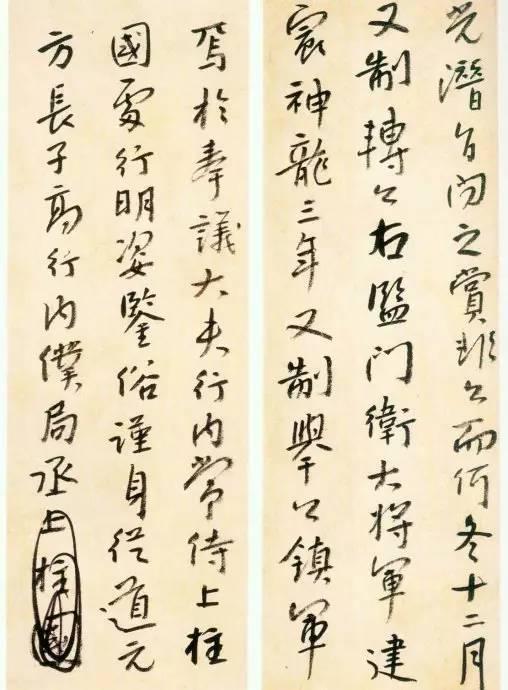 光潛之賞公而何冬十二月
又制轉公右監門衛大將軍建
神龍三年又制舉公鎮軍
焉於奉議大夫行內常侍上柱
國行明姿鑒俗謹身從道元
方長子高行內僕局丞上柱國